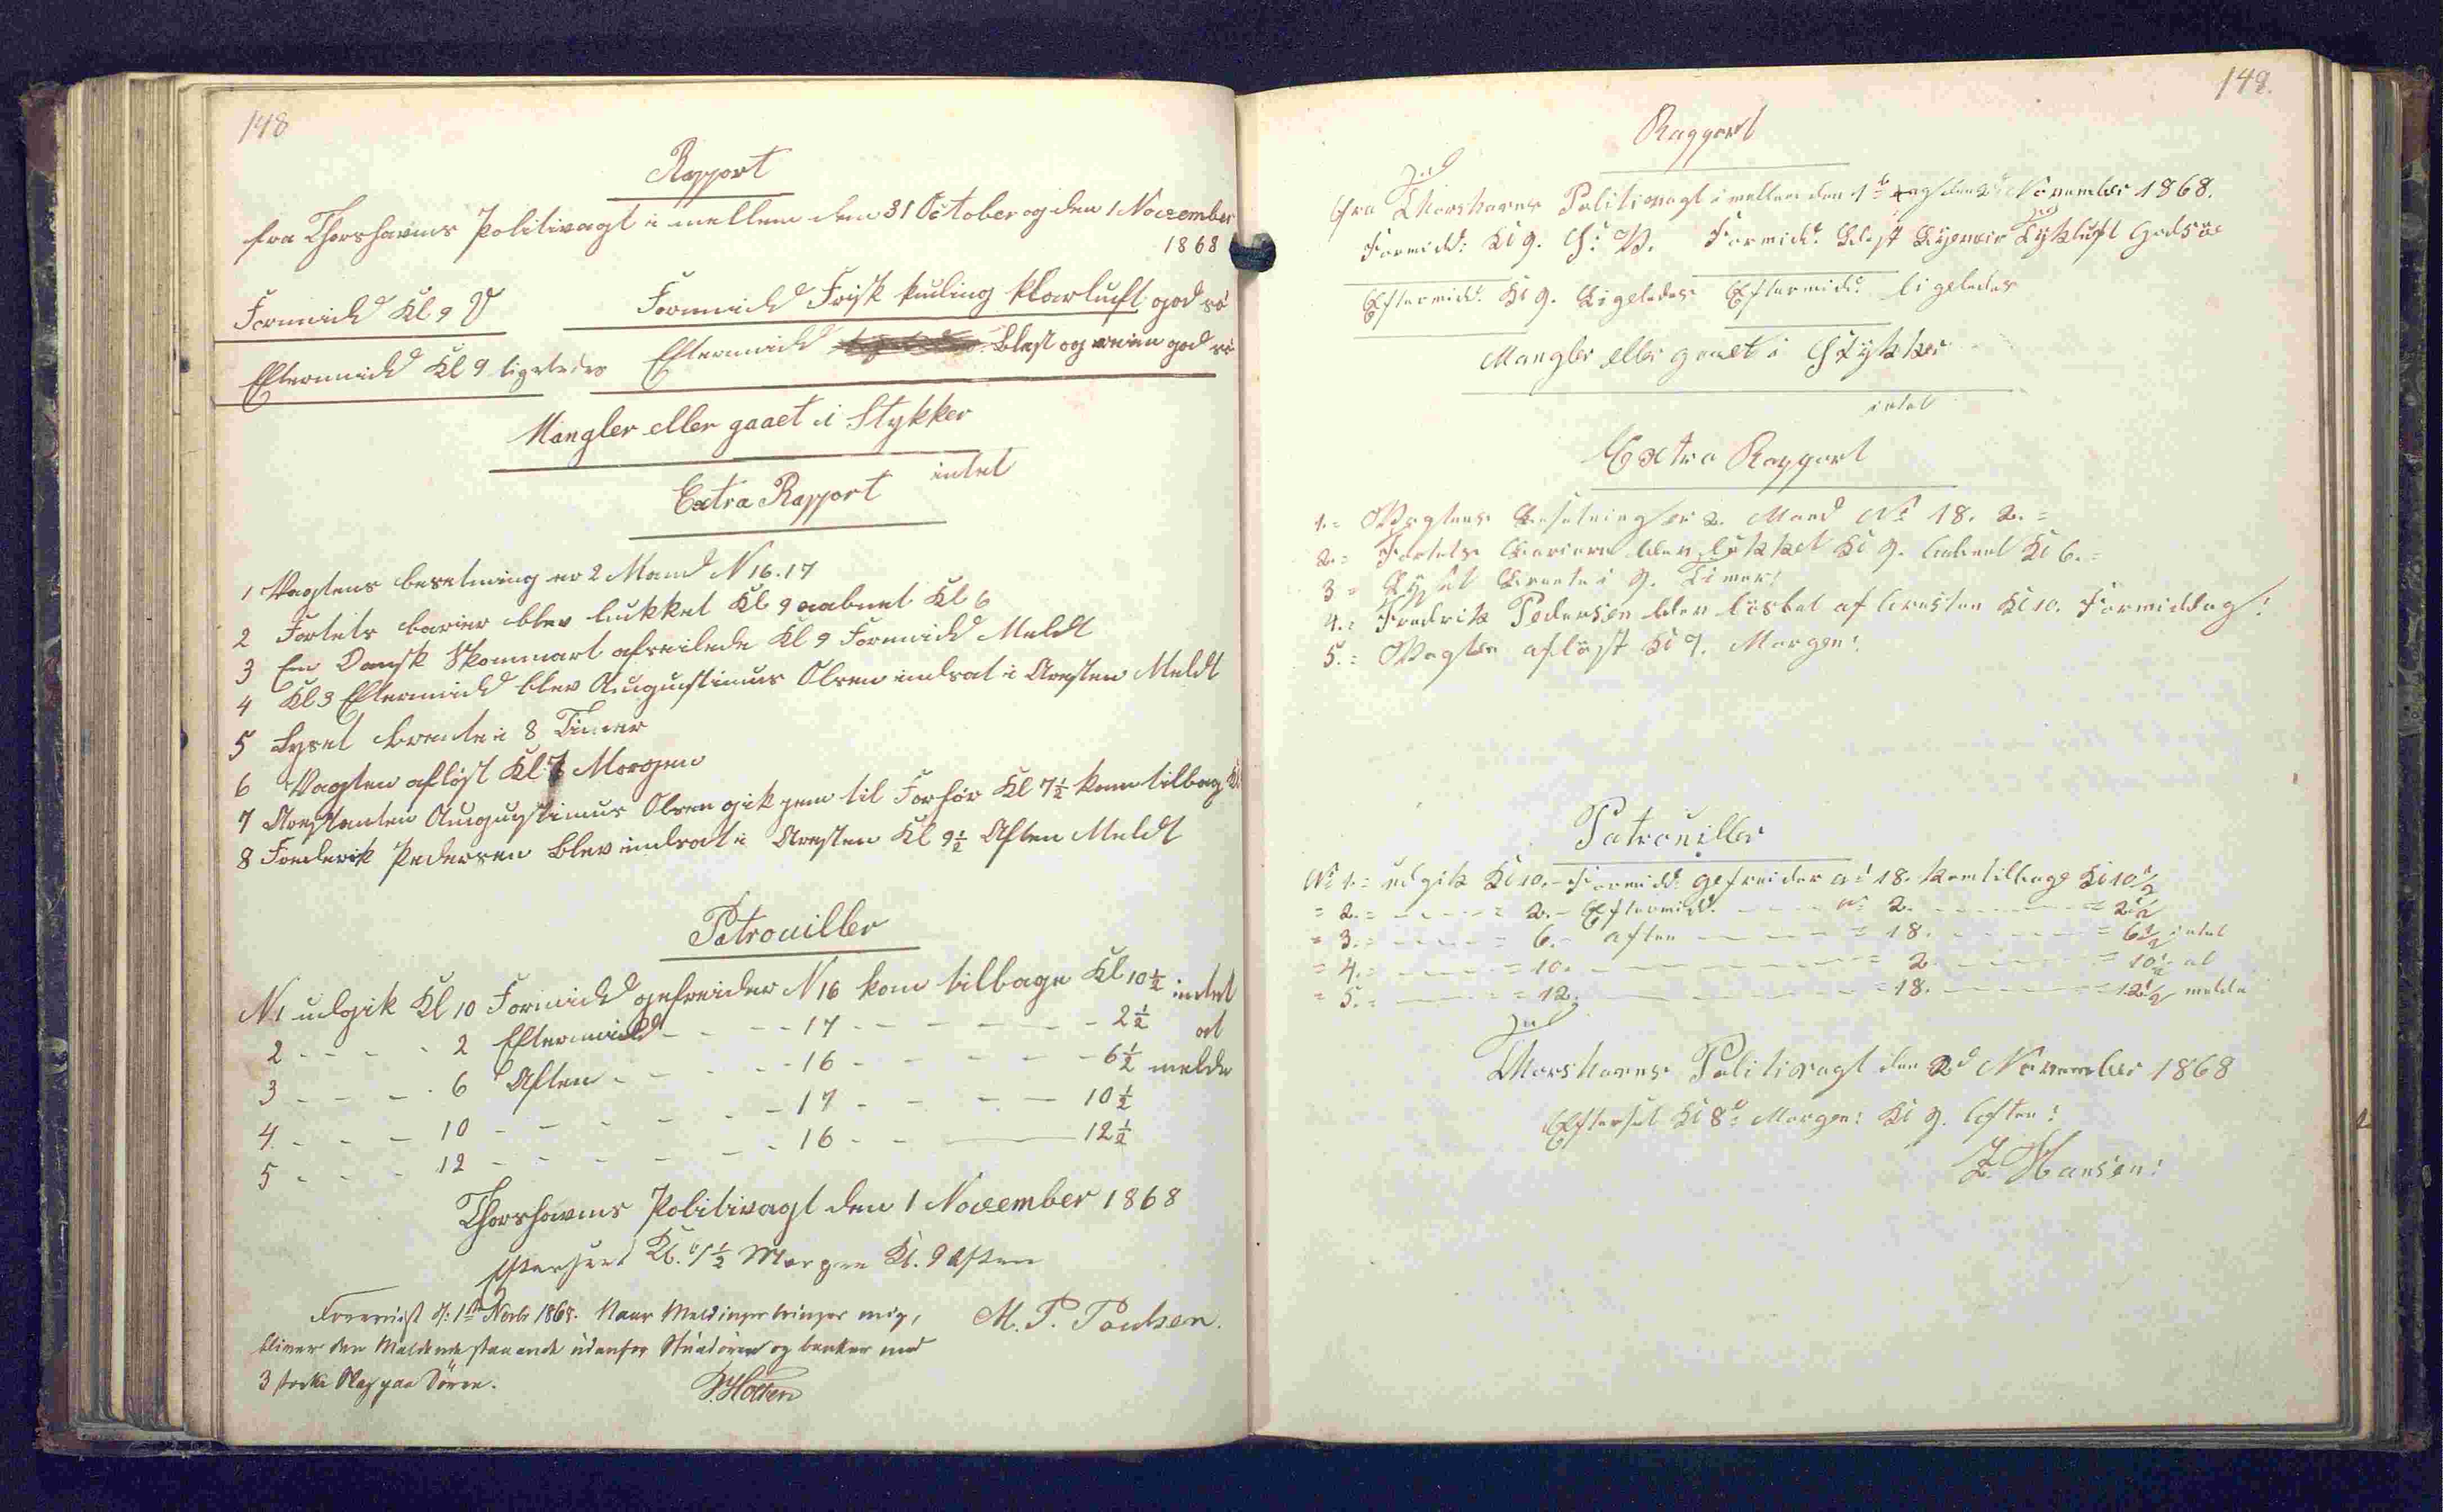 148
Rapport
fra Thorshavns Politivagt i mellem den 31 October og den 1 November
1868
Formidd Kl 9 V
Formidd Frisk kuling klarluft god sö
Eftermidd Kl 9 ligeledes
Eftermidd Blest og god sö
Mangler eller gaaet i Stykker
intet
Extra Rapport
1 Vagtens besetning er 2 Mand N 16. 17
2 Fortets barier blev lukket Kl 9 aabnet Kl 6
3 En Dansk Skonnart afseilede Kl 9 Formidd Meldt
4 Kl 3 Eftermidd blev Augustinus Olsen indsat i Aresten Meldt
5 Lyset brente i 8 Timer
6 Vagten afløst Kl 7 Morgen
7 Arestanten Augustinus Olsen gik jem til Forhör Kl 7½ kom tilbag Kl
8 Frederik Pedersen blev indsat i Aresten Kl 9½ Aften Meldt
Patrouiller
N 1 udgik Kl 10 Formidd gefreider N 16 kom tilbage Kl 10½ intet
2 - - - - 2 Eftermidd - - - - 17 - - - - - - 2½ at
3 - - - - 6 Aften - - - - - 16 - - - - - - 6½ melde
4 - - - 10 - - - - - - 17 - - - - 10½
5 - - - 12 - - - - - - 16 - - - 12½
Thorshavns Politivagt den 1 November 1868
Efterseet Kl. ½ Morgen Kl. 9 Aften
M. P. Poulsen.
Foreviist d: 1ste Novbr 1868. Naar Meldinger bringes mig,
bliver den Meldende staaende udenfor Stuedören og banker med
3 Slag paa Dören.
Holten
149.
Rapport
fra Thorshavns Politivagt imellem den 1d og den 2d November 1868.
Formidd: Kl 9. S: V. Formidd: Blest Tykluft God Söe
Eftermidd: Kl 9. Ligeledes Eftermidd: ligeledes
Mangler eller gaaet i Stykker
intet
Extra Rapport
1. = Vagtens Besetning er 2. Mand No 18. 2. =
2. = Fortets Bariere blev lukket Kl 9. Aabnet Kl 6. =
3 = Lyset Brente i 9. Timer!
4. = Fredrik Pedersen blev löslat af Aresten Kl 10. Formiddag!
5. = Vagten aflöst Kl 7. Morgen!
Patrouiller
No 1. = udgik Kl 10. - Formidd: gefreider No 18. kom tilbage Kl 10½
= 2. = - - - = 2. - Eftermidd: - - - No 2. - - - = 2½
= 3. = - - - = 6. - aften - - - = 18. - - - = 6½ intet
= 4. = - - - = 10. - - - = 2. - - - = 10½ at
= 5. = - - - = 12. - - - = 18. - - - = 12½ melde
Thorshavns Politivagt den 2d November 1868
Efterset Kl 8 Morgen: Kl 9. Aften!
Z. Hansen!